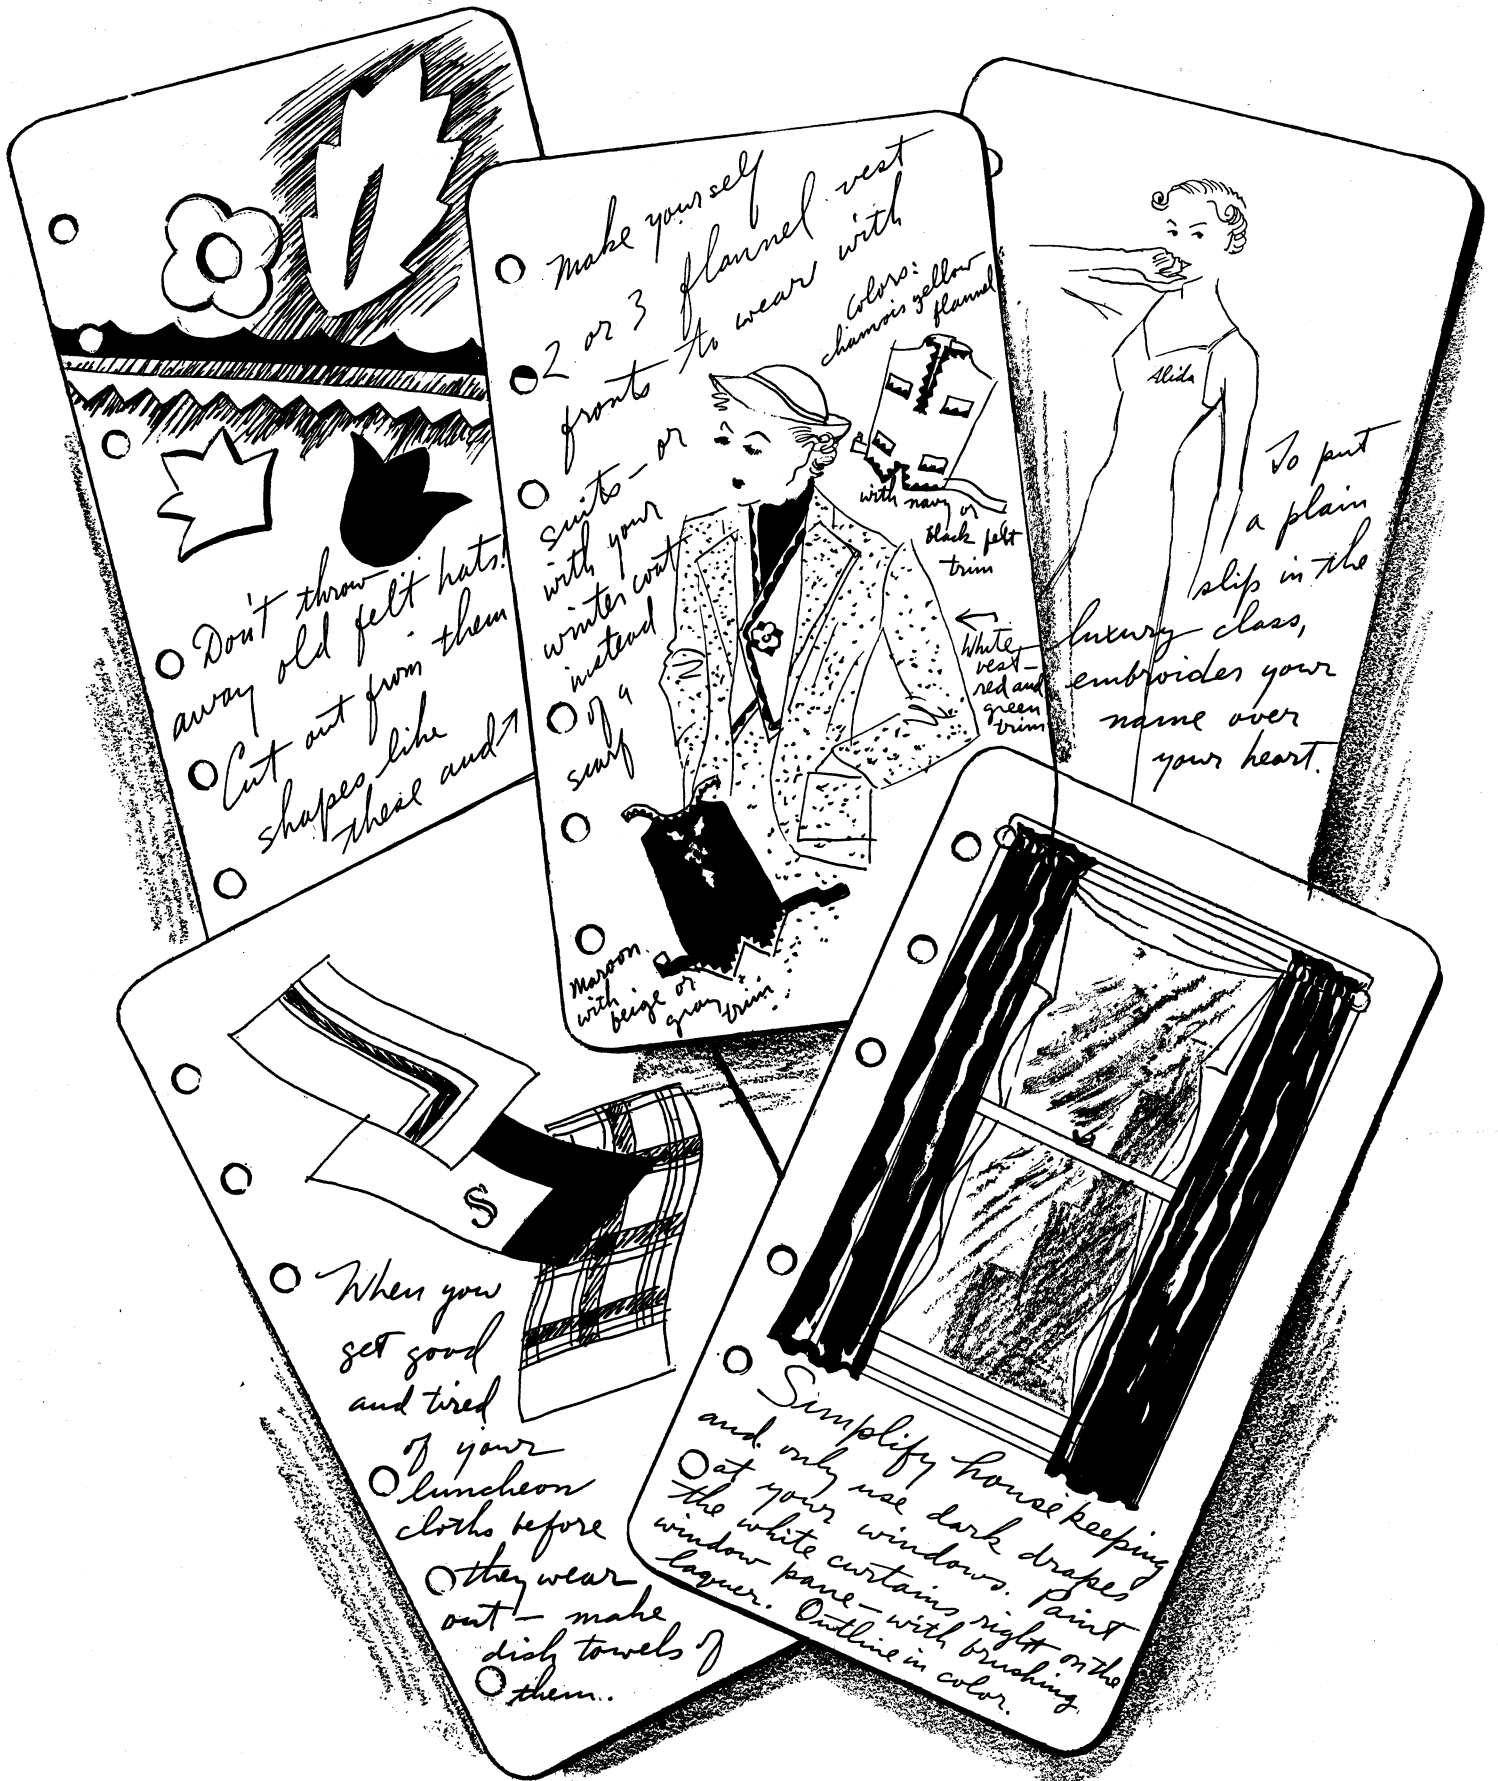 Don't throw
away old felt hats!
Cut out from them
shapes like
these and ↑
Make yourself
2 or 3 flannel vest
fronts to wear with
suits — or
with your
winter coat
instead
of a
scarf
Colors:
chamois yellow
flannel
with navy or
black felt
trim
←
White
vest —
red and
green
trim
Maroon
with
beige or
gray trim
Alida
To put
a plain
slip in the
luxury class,
embroider your
name over
your heart.
S
When you
get good
and tired
of your
luncheon
cloths before
they wear
out — make
dish towels of
them..
Simplify housekeeping
and only use dark drapes
at your windows. Paint
the white curtains right on the
window pane — with brushing
laquer. Outline in color.